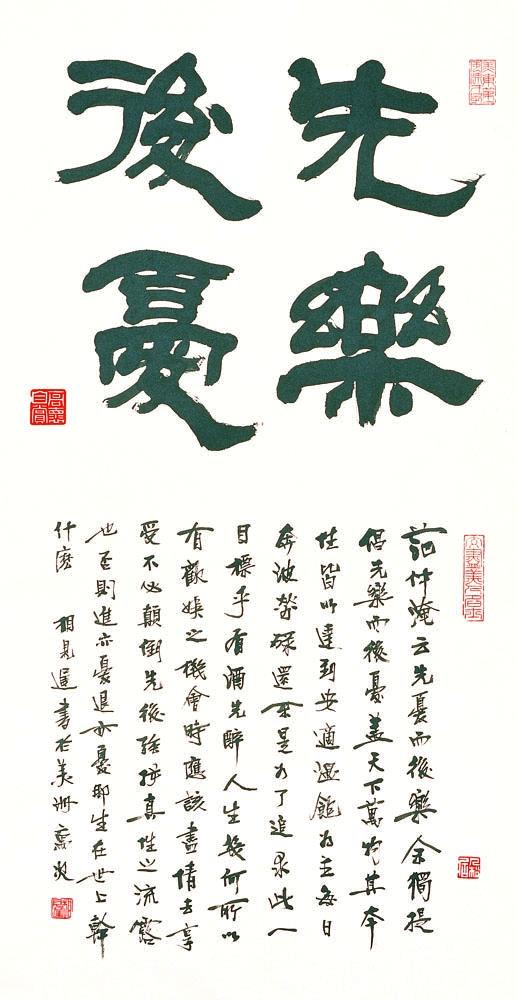 先樂
後憂
范仲淹云先憂而後樂余獨提
倡先樂而後憂蓋天下萬物其本
性皆以達到安適溫飽為主每日
奔波勞碌還不是為了追求此一
目標乎有酒先醉人生幾何所以
有歡娛之機會時應該盡情去享
受不必顛倒先後強抑真性之流露
也否則進亦憂退亦憂那生在世上幹
什麼 相見遲書於美洲
自賞